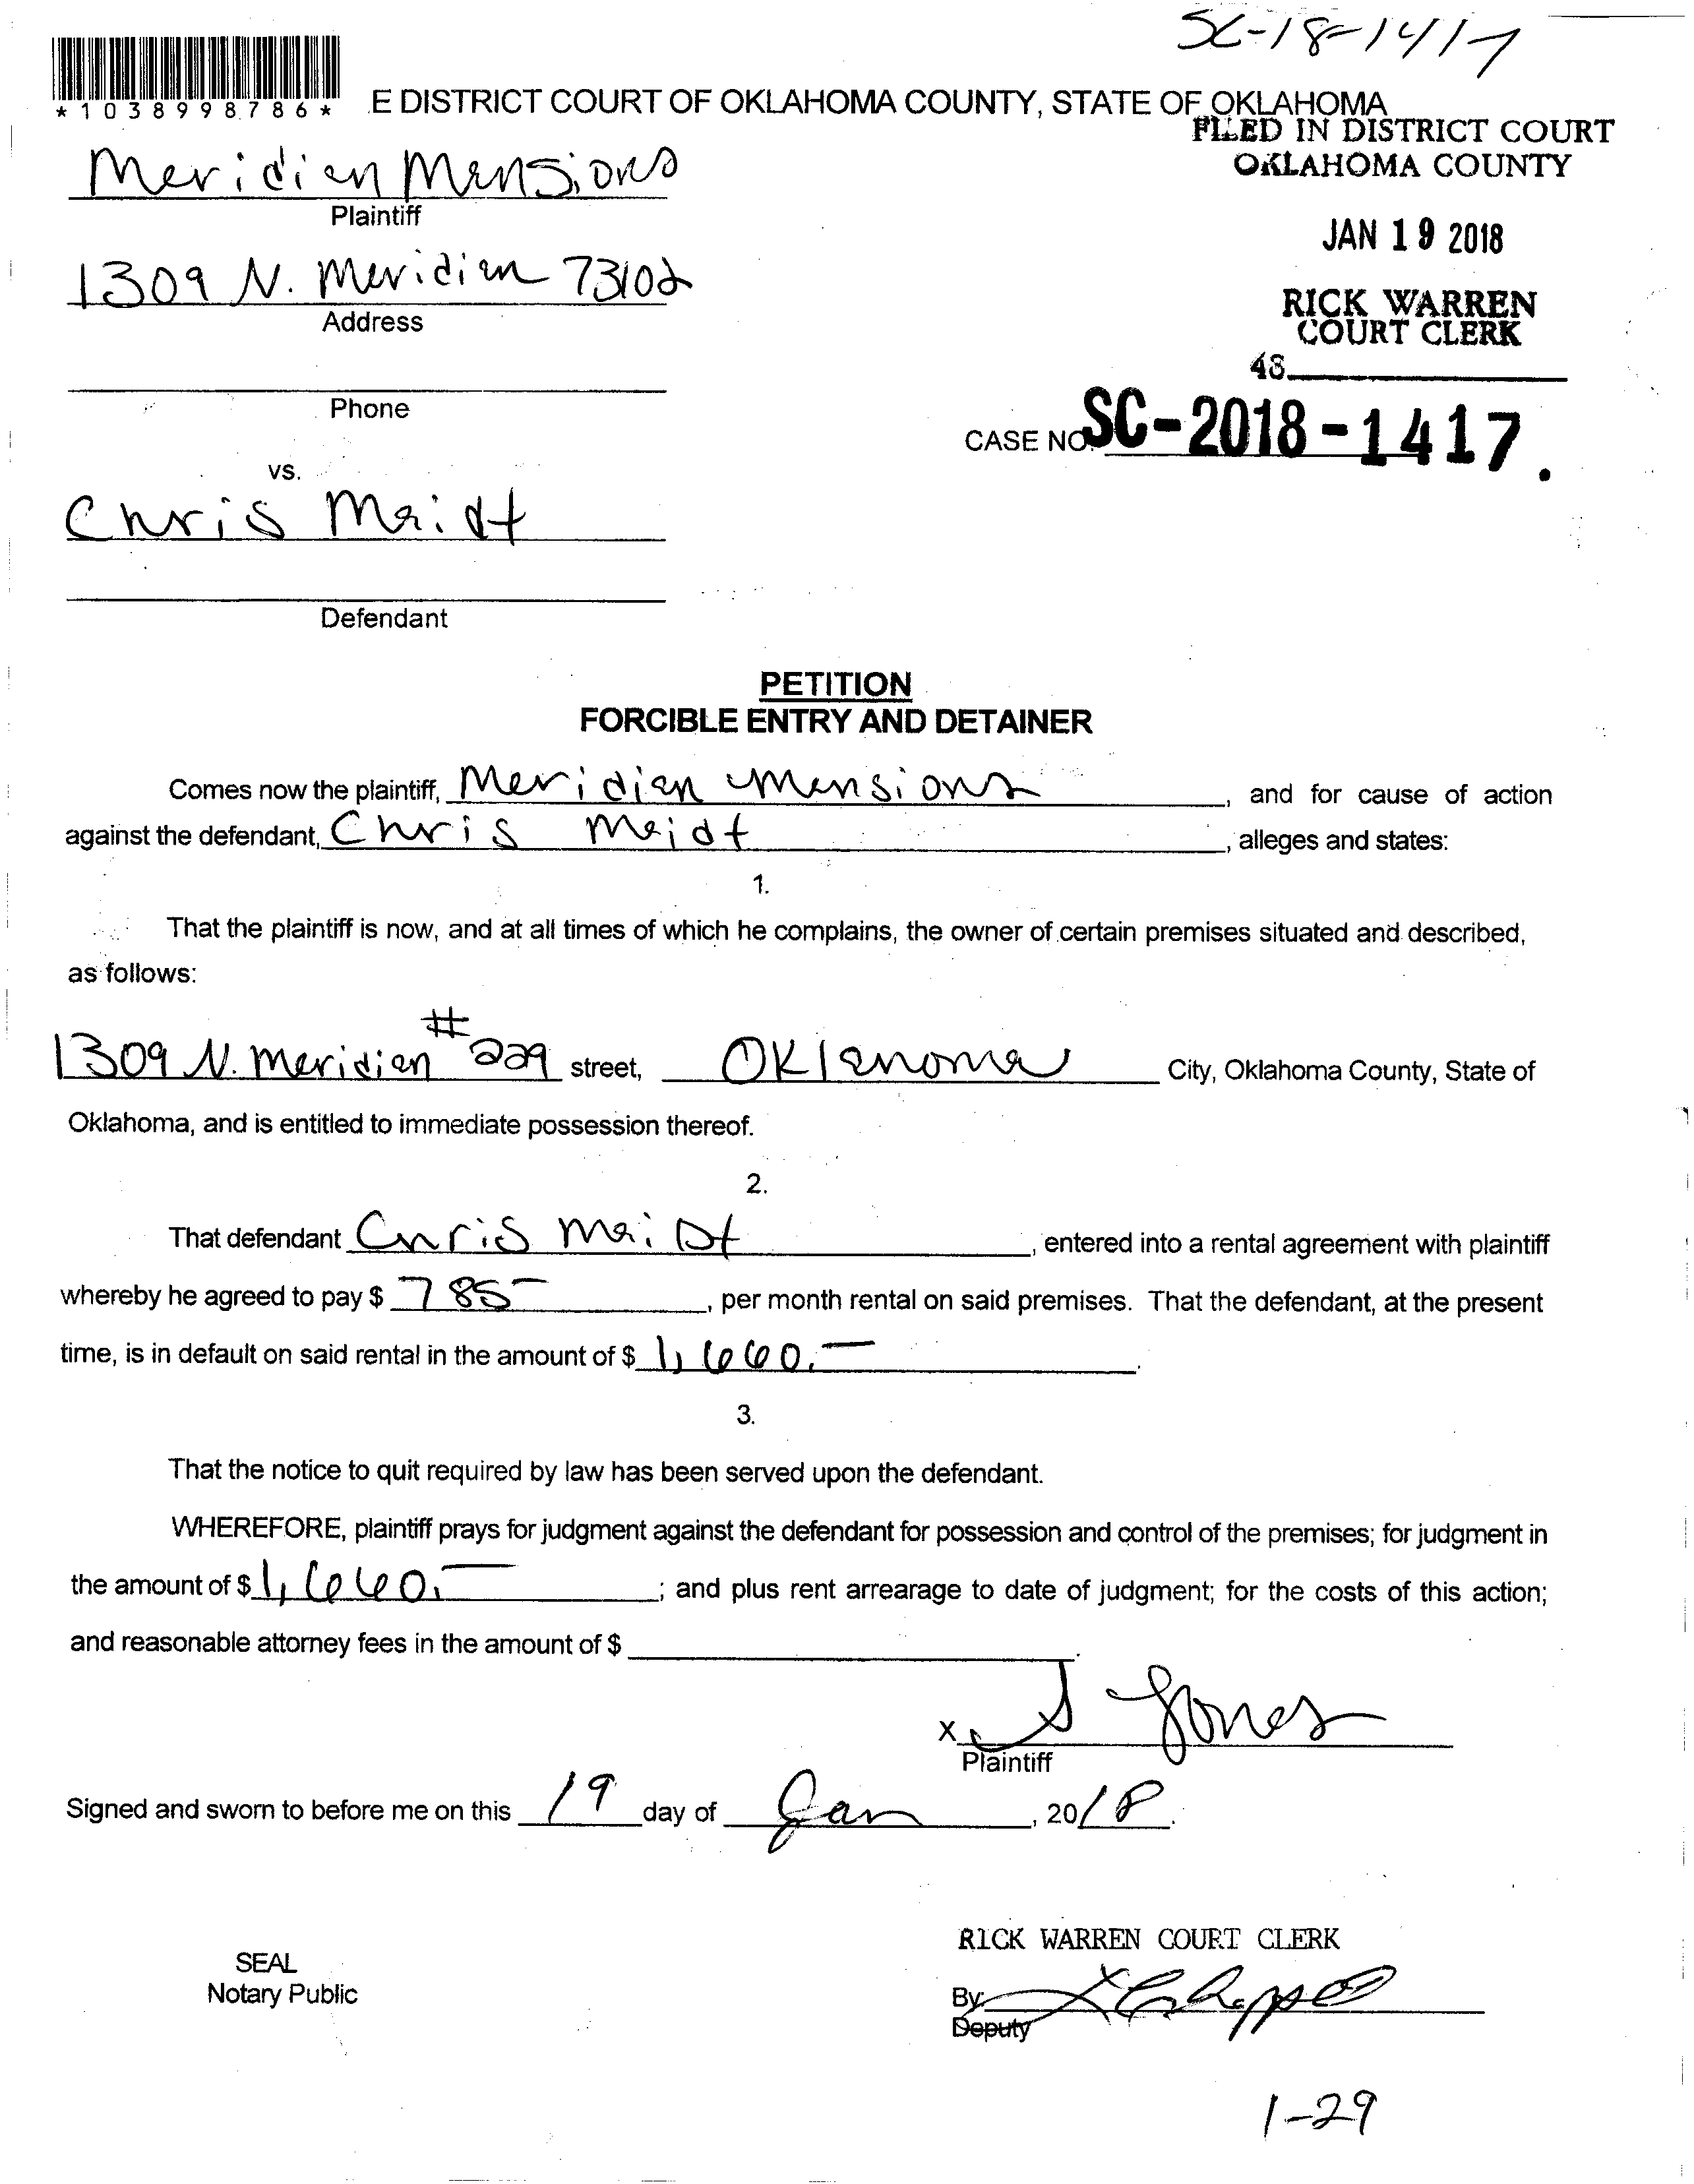 SC-18-1417
*1038998786*
E DISTRICT COURT OF OKLAHOMA COUNTY, STATE OF OKLAHOMA
FILED IN DISTRICT COURT
OKLAHOMA COUNTY
Meridian Mansions
Plaintiff
JAN 19 2018
1309 N. Meridian 73102
Address
RICK WARREN
COURT CLERK
48
Phone
CASE NO. SC-2018-1417.
vs.
Chris Maidt
Defendant
PETITION
FORCIBLE ENTRY AND DETAINER
Comes now the plaintiff, Meridian Mansions, and for cause of action
against the defendant, Chris Maidt, alleges and states:
1.
That the plaintiff is now, and at all times of which he complains, the owner of certain premises situated and described,
as follows:
1309 N. Meridian #229 street, Oklahoma City, Oklahoma County, State of
Oklahoma, and is entitled to immediate possession thereof.
2.
That defendant Chris MaiDt, entered into a rental agreement with plaintiff
whereby he agreed to pay $ 785-, per month rental on said premises. That the defendant, at the present
time, is in default on said rental in the amount of $ 1,660.-.
3.
That the notice to quit required by law has been served upon the defendant.
WHEREFORE, plaintiff prays for judgment against the defendant for possession and control of the premises; for judgment in
the amount of $ 1,660.-; and plus rent arrearage to date of judgment; for the costs of this action;
and reasonable attorney fees in the amount of $ .
X S Jones
Plaintiff
Signed and sworn to before me on this 19 day of Jan, 2018.
RICK WARREN COURT CLERK
SEAL
Notary Public
By:
Deputy
1-29